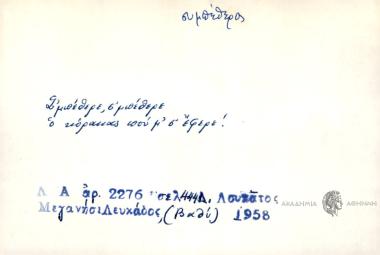 συμπέθερος
Σ'μπέθερε, σ'μπέθερε
ὁ κόρακας ποὺ μ' σ' ἔφερε!
Λ Α ἀρ. 2276 σελ. Δ. Λουκᾶτος
Μεγανήσι Λευκάδος, (Βαθύ) 1958
ΑΚΑΔΗΜΙΑ ΑΘΗΝΩΝ